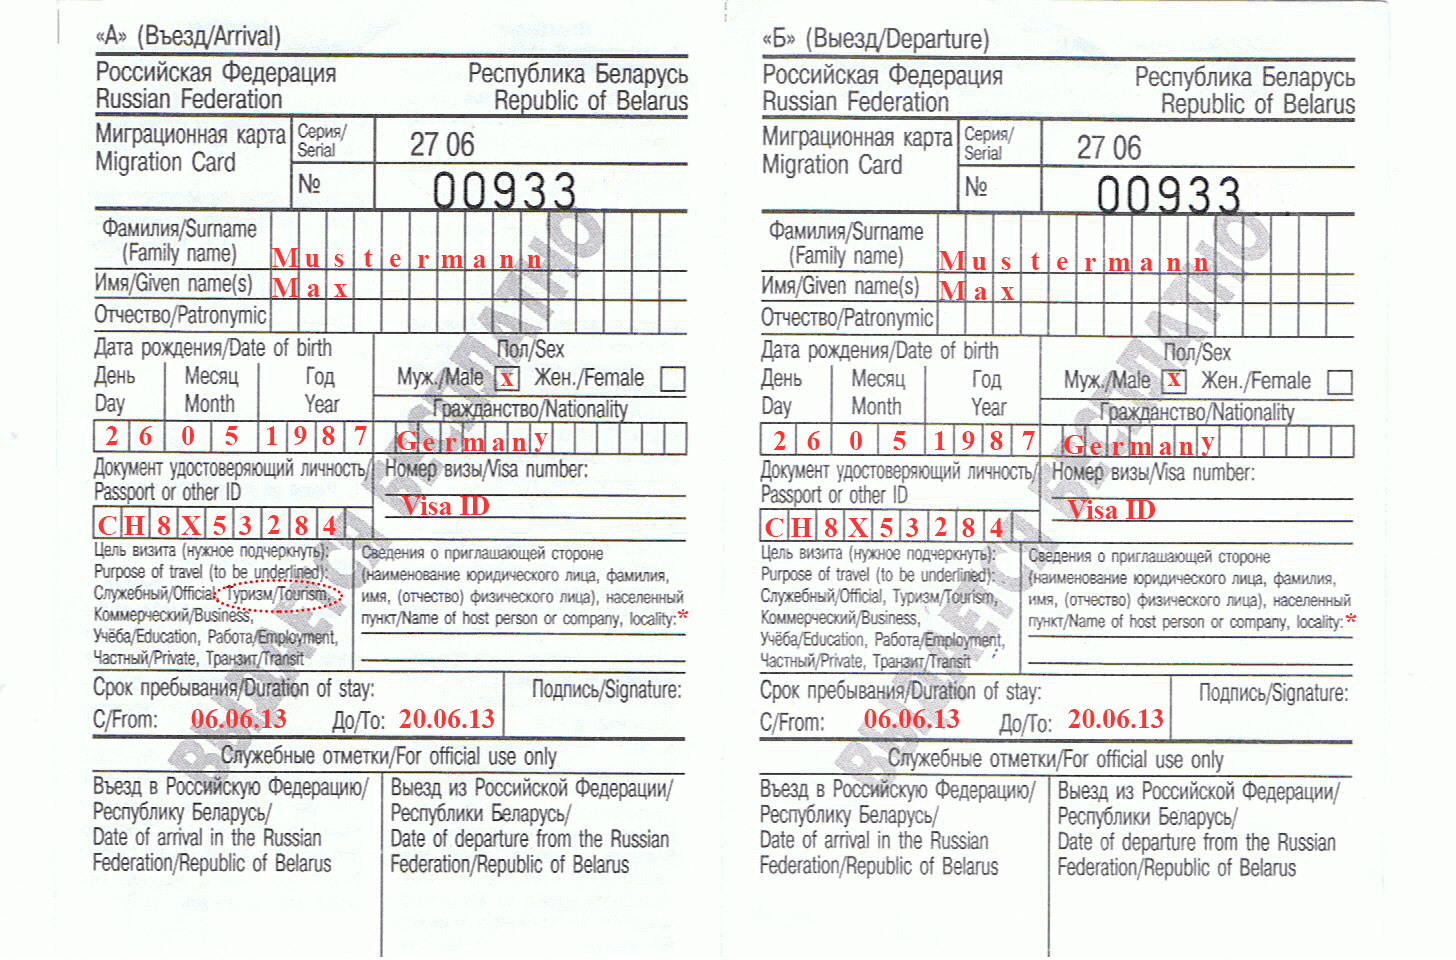 «А» (Въезд/Arrival)
Российская Федерация Республика Беларусь
Russian Federation Republic of Belarus
Миграционная карта Серия/ 27 06
Migration Card Serial
№ 00933
Фамилия/Surname
(Family name) Mustermann
Имя/Given name(s) Max
Отчество/Patronymic
Дата рождения/Date of birth Пол/Sex
День Месяц Год Муж./Male x Жен./Female
Day Month Year Гражданство/Nationality
2 6 0 5 1 9 8 7 Germany
Документ удостоверяющий личность/ Номер визы/Visa number:
Passport or other ID Visa ID
CH8X53284
Цель визита (нужное подчеркнуть): Сведения о приглашающей стороне
Purpose of travel (to be underlined): (наименование юридического лица, фамилия,
Служебный/Official, Туризм/Tourism, имя, (отчество) физического лица), населенный
Коммерческий/Business, пункт/Name of host person or company, locality:*
Учёба/Education, Работа/Employment,
Частный/Private, Транзит/Transit
Срок пребывания/Duration of stay: Подпись/Signature:
С/From: 06.06.13 До/To: 20.06.13
Служебные отметки/For official use only
Въезд в Российскую Федерацию/ Выезд из Российской Федерации/
Республику Беларусь/ Республики Беларусь/
Date of arrival in the Russian Date of departure from the Russian
Federation/Republic of Belarus Federation/Republic of Belarus
ВЫДАЕТСЯ БЕСПЛАТНО
«Б» (Выезд/Departure)
Российская Федерация Республика Беларусь
Russian Federation Republic of Belarus
Миграционная карта Серия/ 27 06
Migration Card Serial
№ 00933
Фамилия/Surname
(Family name) Mustermann
Имя/Given name(s) Max
Отчество/Patronymic
Дата рождения/Date of birth Пол/Sex
День Месяц Год Муж./Male x Жен./Female
Day Month Year Гражданство/Nationality
2 6 0 5 1 9 8 7 Germany
Документ удостоверяющий личность/ Номер визы/Visa number:
Passport or other ID Visa ID
CH8X53284
Цель визита (нужное подчеркнуть): Сведения о приглашающей стороне
Purpose of travel (to be underlined): (наименование юридического лица, фамилия,
Служебный/Official, Туризм/Tourism, имя, (отчество) физического лица), населенный
Коммерческий/Business, пункт/Name of host person or company, locality:*
Учёба/Education, Работа/Employment,
Частный/Private, Транзит/Transit
Срок пребывания/Duration of stay: Подпись/Signature:
С/From: 06.06.13 До/To: 20.06.13
Служебные отметки/For official use only
Въезд в Российскую Федерацию/ Выезд из Российской Федерации/
Республику Беларусь/ Республики Беларусь/
Date of arrival in the Russian Date of departure from the Russian
Federation/Republic of Belarus Federation/Republic of Belarus
ВЫДАЕТСЯ БЕСПЛАТНО